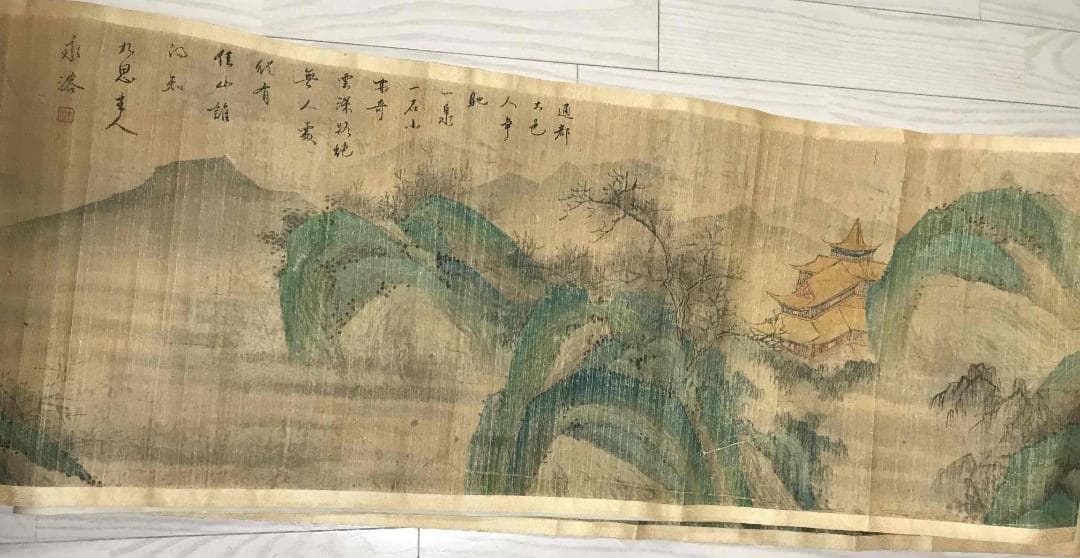 通都
大邑
人争
馳
一泉
一石小
亦奇
雲深路絶
無人處
縱有
佳山誰
得知
九思主人
永瑢